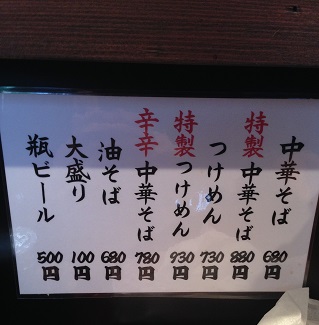 中華そば 680円
特製中華そば 880円
つけめん 730円
特製つけめん 930円
辛辛中華そば 780円
油そば 680円
大盛り 100円
瓶ビール 500円